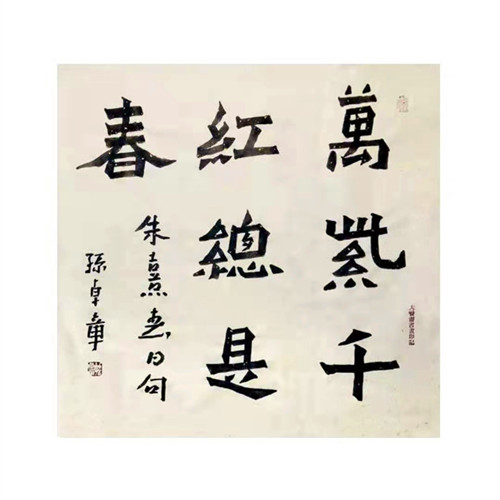 萬紫千
紅總是
春
朱熹春日句
孫卓章